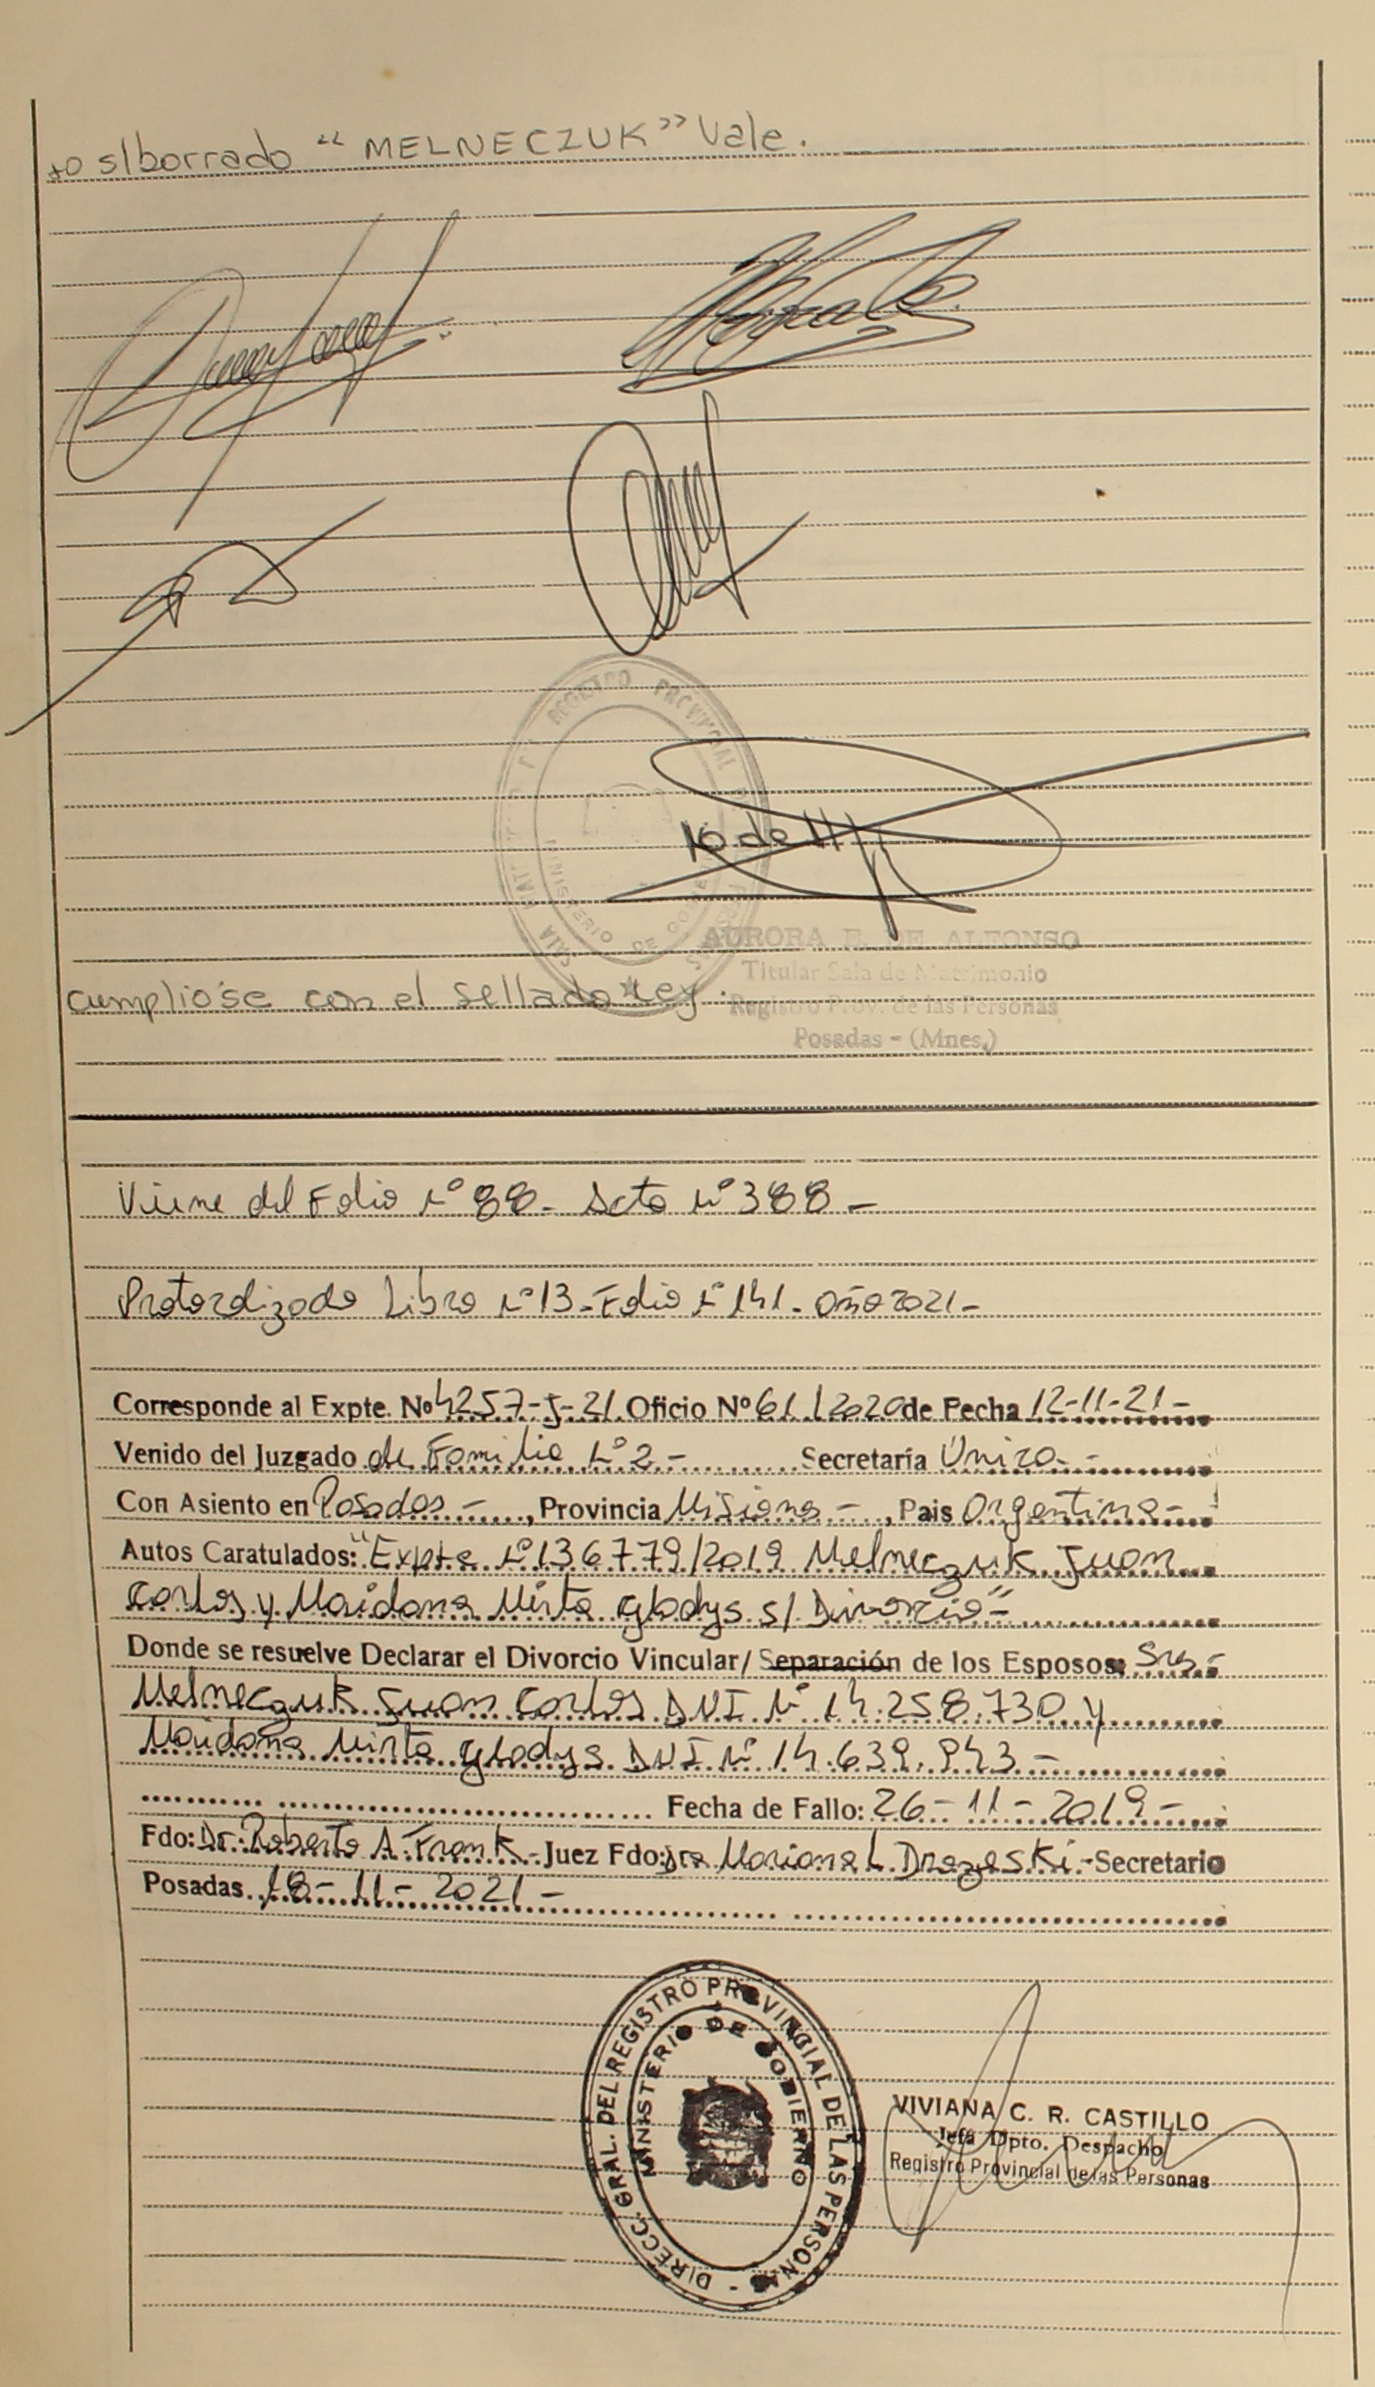 to s/borrado "MELNECZUK" Vale.
REGISTRO PROVINCIAL
MINISTERIO DE GO
AURORA E. DE ALFONSO
Titular Sala de Matrimonio
cumplióse con el sellado Ley.
Registro Prov. de las Personas
Posadas - (Mnes.)
Viene del Folio Nº 88 - Acta Nº 388 -
Protocolizado Libro Nº 13 - Folio Nº 141 - Año 2021 -
Corresponde al Expte. Nº 4257-J-21 Oficio Nº 61/2020 de Fecha 12-11-21 -
Venido del Juzgado de Familia Nº 2 - Secretaría Única -
Con Asiento en Posadas -, Provincia Misiones -, Pais Argentina -
Autos Caratulados: "Expte Nº 136779/2019 Melneczuk Juan
Carlos y Maidana Mirta Gladys s/ Divorcio"
Donde se resuelve Declarar el Divorcio Vincular/ Separación de los Esposos: Sres -
Melneczuk Juan Carlos DNI Nº 14.258.730 y
Maidana Mirta Gladys DNI Nº 14.639.943 -
Fecha de Fallo: 26-11-2019 -
Fdo: Dr. Roberto A Frank - Juez Fdo: Dra Mariana L Drazeski - Secretario
Posadas 18-11-2021 -
DIRECC. GRAL. DEL REGISTRO PROVINCIAL DE LAS PERSONAS -
MINISTERIO DE GOBIERNO
VIVIANA C. R. CASTILLO
Jefa Dpto. Despacho
Registro Provincial de las Personas